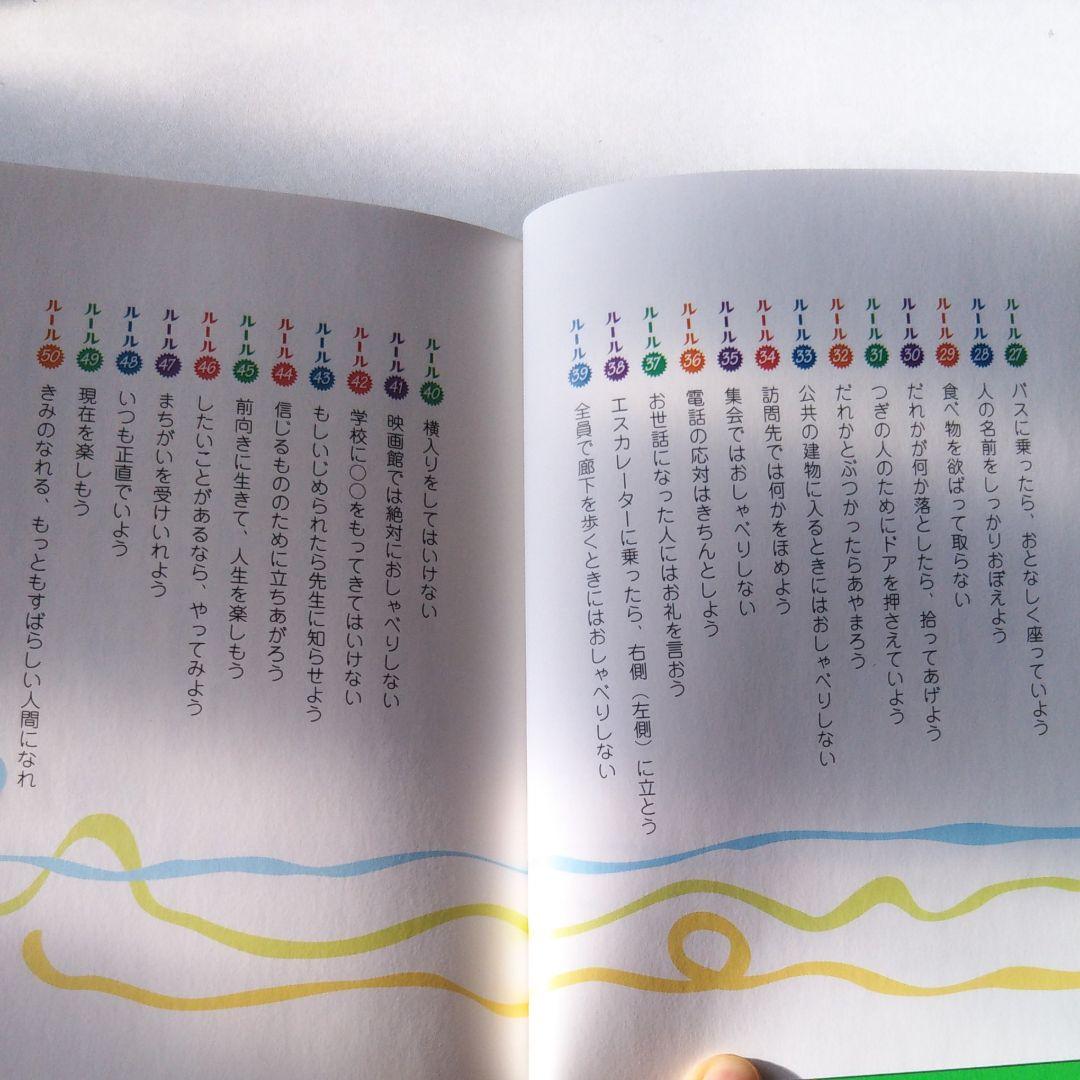 ルール27 バスに乗ったら、おとなしく座っていよう
ルール28 人の名前をしっかりおぼえよう
ルール29 食べ物を欲ばって取らない
ルール30 だれかが何か落としたら、拾ってあげよう
ルール31 つぎの人のためにドアを押さえていよう
ルール32 だれかとぶつかったらあやまろう
ルール33 公共の建物に入るときにはおしゃべりしない
ルール34 訪問先では何かをほめよう
ルール35 集会ではおしゃべりしない
ルール36 電話の応対はきちんとしよう
ルール37 お世話になった人にはお礼を言おう
ルール38 エスカレーターに乗ったら、右側（左側）に立とう
ルール39 全員で廊下を歩くときにはおしゃべりしない
ルール40 横入りをしてはいけない
ルール41 映画館では絶対におしゃべりしない
ルール42 学校に○○をもってきてはいけない
ルール43 もしいじめられたら先生に知らせよう
ルール44 信じるもののために立ちあがろう
ルール45 前向きに生きて、人生を楽しもう
ルール46 したいことがあるなら、やってみよう
ルール47 まちがいを受けいれよう
ルール48 いつも正直でいよう
ルール49 現在を楽しもう
ルール50 きみのなれる、もっともすばらしい人間になれ